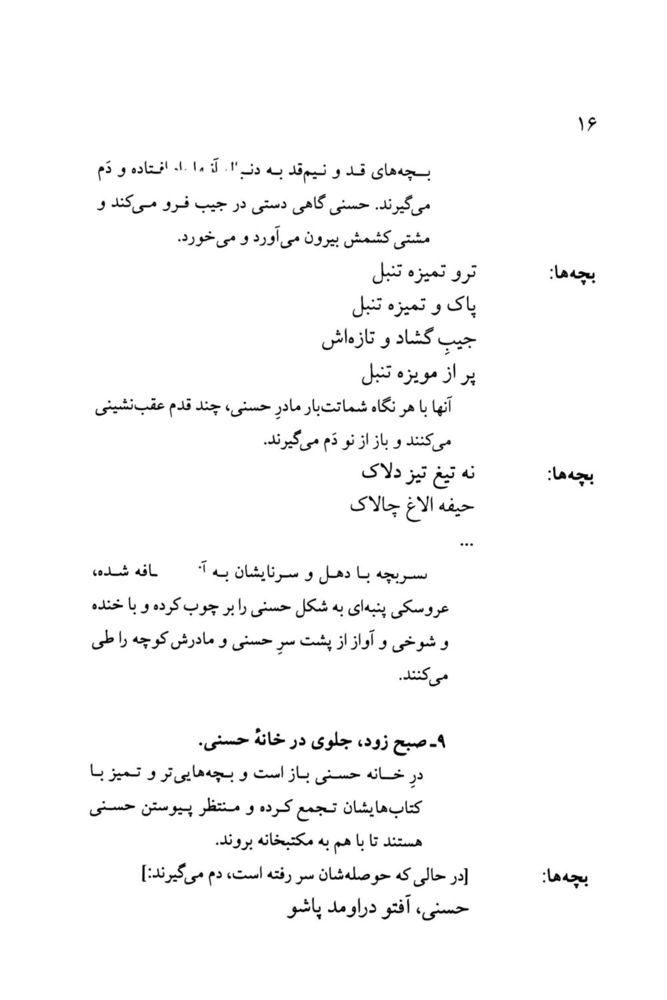 ۱۶
بـچه‌های قـد و نـیم‌قد بـه افـتاده و دَم
می‌گیرند. حسنی گاهی دستی در جیب فـرو مـی‌کند و
مشتی کشمش بیرون می‌آورد و می‌خورد.
بچه‌ها: ترو تمیزه تنبل
پاک و تمیزه تنبل
جیبِ گشاد و تازه‌اش
پر از مویزه تنبل
آنها با هر نگاه شماتت‌بار مادرِ حسنی، چند قدم عقب‌نشینی
می‌کنند و باز از نو دَم می‌گیرند.
بچه‌ها: نه تیغ تیز دلاک
حیفه الاغ چالاک
...
بـا دهـل و سـرنایشان بـه شده،
عروسکی پنبه‌ای به شکل حسنی را بر چوب کرده و با خنده
و شوخی و آواز از پشت سرِ حسنی و مادرش کوچه را طی
می‌کنند.
۹ـ صبح زود، جلوی در خانهٔ حسنی.
درِ خـانه حسنی بـاز است و بـچه‌هایی‌تر و تـمیز بـا
کتاب‌هایشان تـجمع کـرده و مـنتظر پـیوستن حسـنی
هستند تا با هم به مکتبخانه بروند.
بچه‌ها: [در حالی که حوصله‌شان سر رفته است، دم می‌گیرند:]
حسنی، آفتو دراومد پاشو